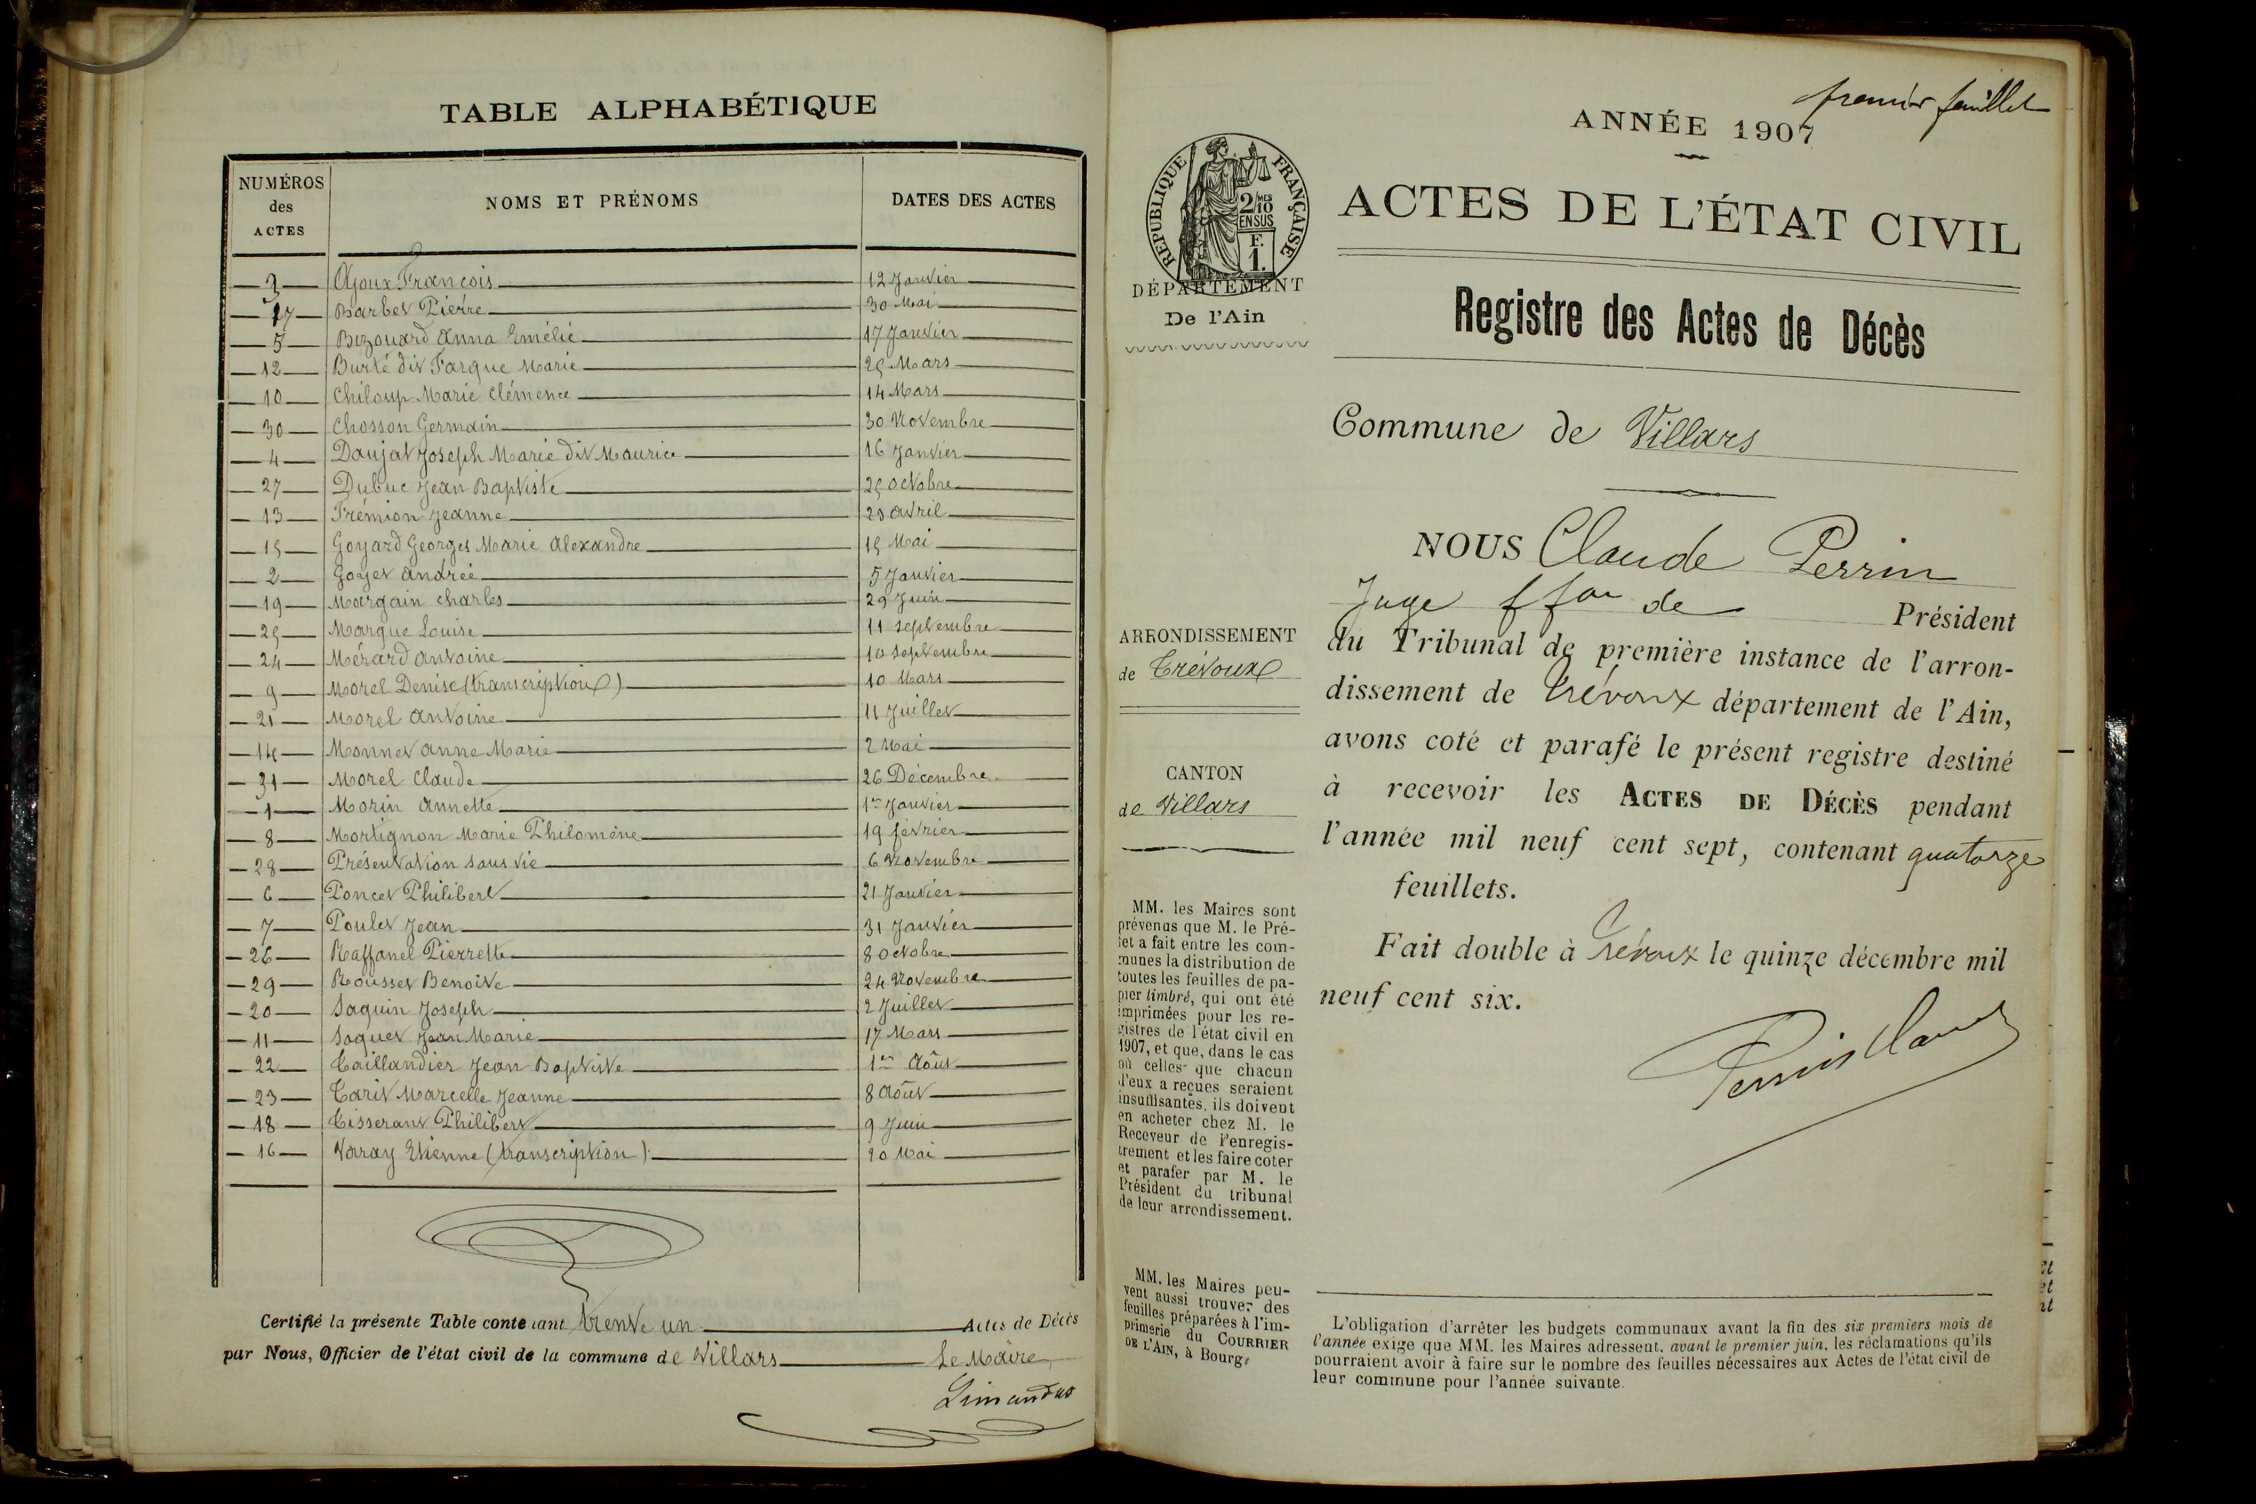 TABLE ALPHABÉTIQUE
NUMÉROS des ACTES NOMS ET PRÉNOMS DATES DES ACTES
3 Ajoux François 12 Janvier
17 Barbet Pierre 30 Mai
5 Bizouard Anna Emélie 17 Janvier
12 Burlé dit Fargue Marie 25 Mars
10 Chiloup Marie Clémence 14 Mars
30 Chosson Germain 30 Novembre
4 Daujat Joseph Marie dit Maurice 16 Janvier
27 Dubuc Jean Baptiste 25 octobre
13 Frémion Jeanne 23 avril
15 Goyard Georges Marie Alexandre 15 Mai
2 Goyet Andrée 5 Janvier
19 Margain Charles 29 Juin
25 Marque Louise 11 septembre
24 Mérard Antoine 10 septembre
9 Morel Denise (transcription) 10 Mars
21 Morel Antoine 11 Juillet
14 Monnet Anne Marie 2 Mai
31 Morel Claude 26 Décembre
1 Morin Annette 1er Janvier
8 Mortignon Marie Philomène 19 février
28 Présentation sans vie 6 Novembre
6 Poncet Philibert 21 Janvier
7 Poulet Jean 31 Janvier
26 Raffanel Pierrette 8 octobre
29 Rousset Benoite 24 Novembre
20 Saquin Joseph 2 Juillet
11 Saquet Jean Marie 17 Mars
22 Taillandier Jean Baptiste 1er Août
23 Tarit Marcelle Jeanne 8 Août
18 Tisserant Philibert 9 Juin
16 Varay Etienne (transcription) 20 Mai
Certifié la présente Table contenant trente un Actes de Décès
par Nous, Officier de l'état civil de la commune de Villars Le Maire
Limandas
premier feuillet
ANNÉE 1907
RÉPUBLIQUE FRANÇAISE
2/10 MES
EN SUS
F.
1.
DÉPARTEMENT
De l'Ain
ACTES DE L'ÉTAT CIVIL
Registre des Actes de Décès
Commune de Villars
NOUS Claude Perrin
Juge ffon de Président
du Tribunal de première instance de l'arron-
dissement de Trévoux département de l'Ain,
avons coté et parafé le présent registre destiné
à recevoir les ACTES DE DÉCÈS pendant
l'année mil neuf cent sept, contenant quatorze
feuillets.
Fait double à Trévoux le quinze décembre mil
neuf cent six.
Perrin Claude
ARRONDISSEMENT
de Trévoux
CANTON
de Villars
MM. les Maires sont
prévenus que M. le Pré-
fet a fait entre les com-
munes la distribution de
toutes les feuilles de pa-
pier timbré, qui ont été
imprimées pour les re-
gistres de l'état civil en
1907, et que, dans le cas
où celles que chacun
d'eux a reçues seraient
insuffisantes, ils doivent
en acheter chez M. le
Receveur de l'enregis-
trement et les faire coter
et parafer par M. le
Président du tribunal
de leur arrondissement.
MM. les Maires peu-
vent aussi trouver des
feuilles préparées à l'im-
primerie du COURRIER
DE L'AIN, à Bourg.
L'obligation d'arrêter les budgets communaux avant la fin des six premiers mois de
l'année exige que MM. les Maires adressent, avant le premier juin, les réclamations qu'ils
pourraient avoir à faire sur le nombre des feuilles nécessaires aux Actes de l'état civil de
leur commune pour l'année suivante.